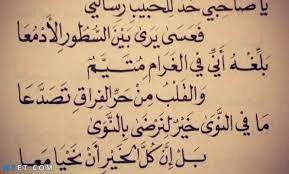 يا صاحبي خذ للحبيب رسالتي
فَعَسى يَرى بَيْنَ السُّطورِ الأَدمُعَا
بَلِّغْهُ أَنِّي في الغَرامِ مُتَيَّمٌ
وَالقَلْبُ مِنْ حَرِّ الفِراقِ تَصَدَّعَا
مَا في النَّوَى خَيْرٌ لِنَرْضَى بِالنَّوَى
بَلْ إِنَّ كُلَّ الخَيْرِ أَنْ نَحْيَا مَعًا
IET.COM